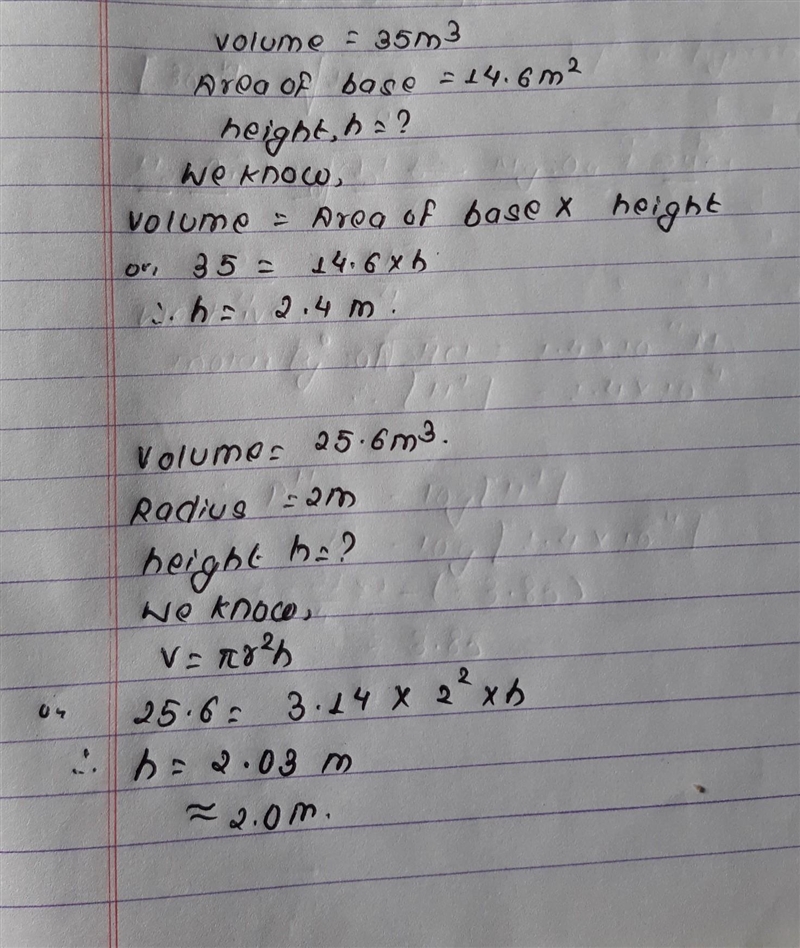 volume = 35m³
Area of base = 14.6m²
height, h = ?
We know,
volume = Area of base × height
or, 35 = 14.6 × h
∴ h = 2.4 m.
Volume = 25.6m³.
Radius = 2m
height h = ?
We know,
V = πr²h
or 25.6 = 3.14 × 2² × h
∴ h = 2.03 m
≈ 2.0m.